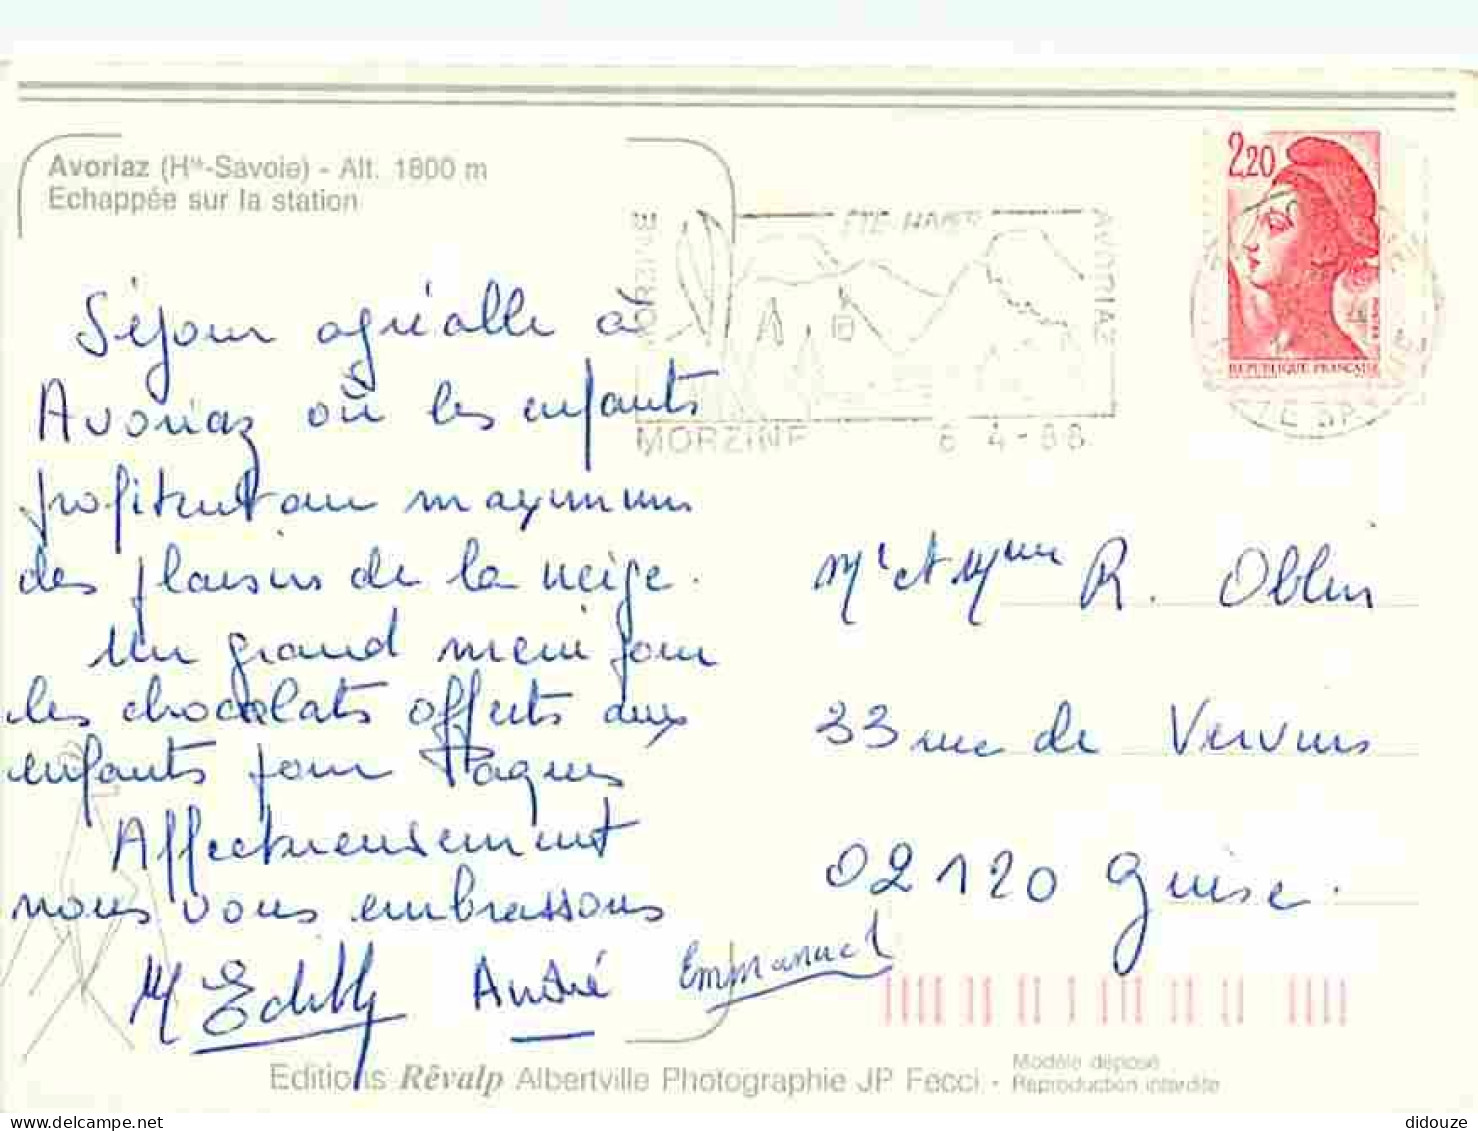 Avoriaz (Hte-Savoie) - Alt. 1800 m
Echappée sur la station
2,20
REPUBLIQUE FRANÇAISE
ETE-HIVER
AVORIAZ
MORZINE
6 4-88
Séjour agréable à
Avoriaz où les enfants
profitent au maximum
des plaisirs de la neige.
Un grand merci pour
les chocolats offerts aux
enfants pour Pâques
Affectueusement
nous vous embrassons
André Emmanuel
Mr et Mme R. Oblin
33 rue de Vervins
02120 Guise.
Editions Rêvalp Albertville Photographie JP Fecci -
Modèle déposé
Reproduction interdite
delcampe.net
didouze